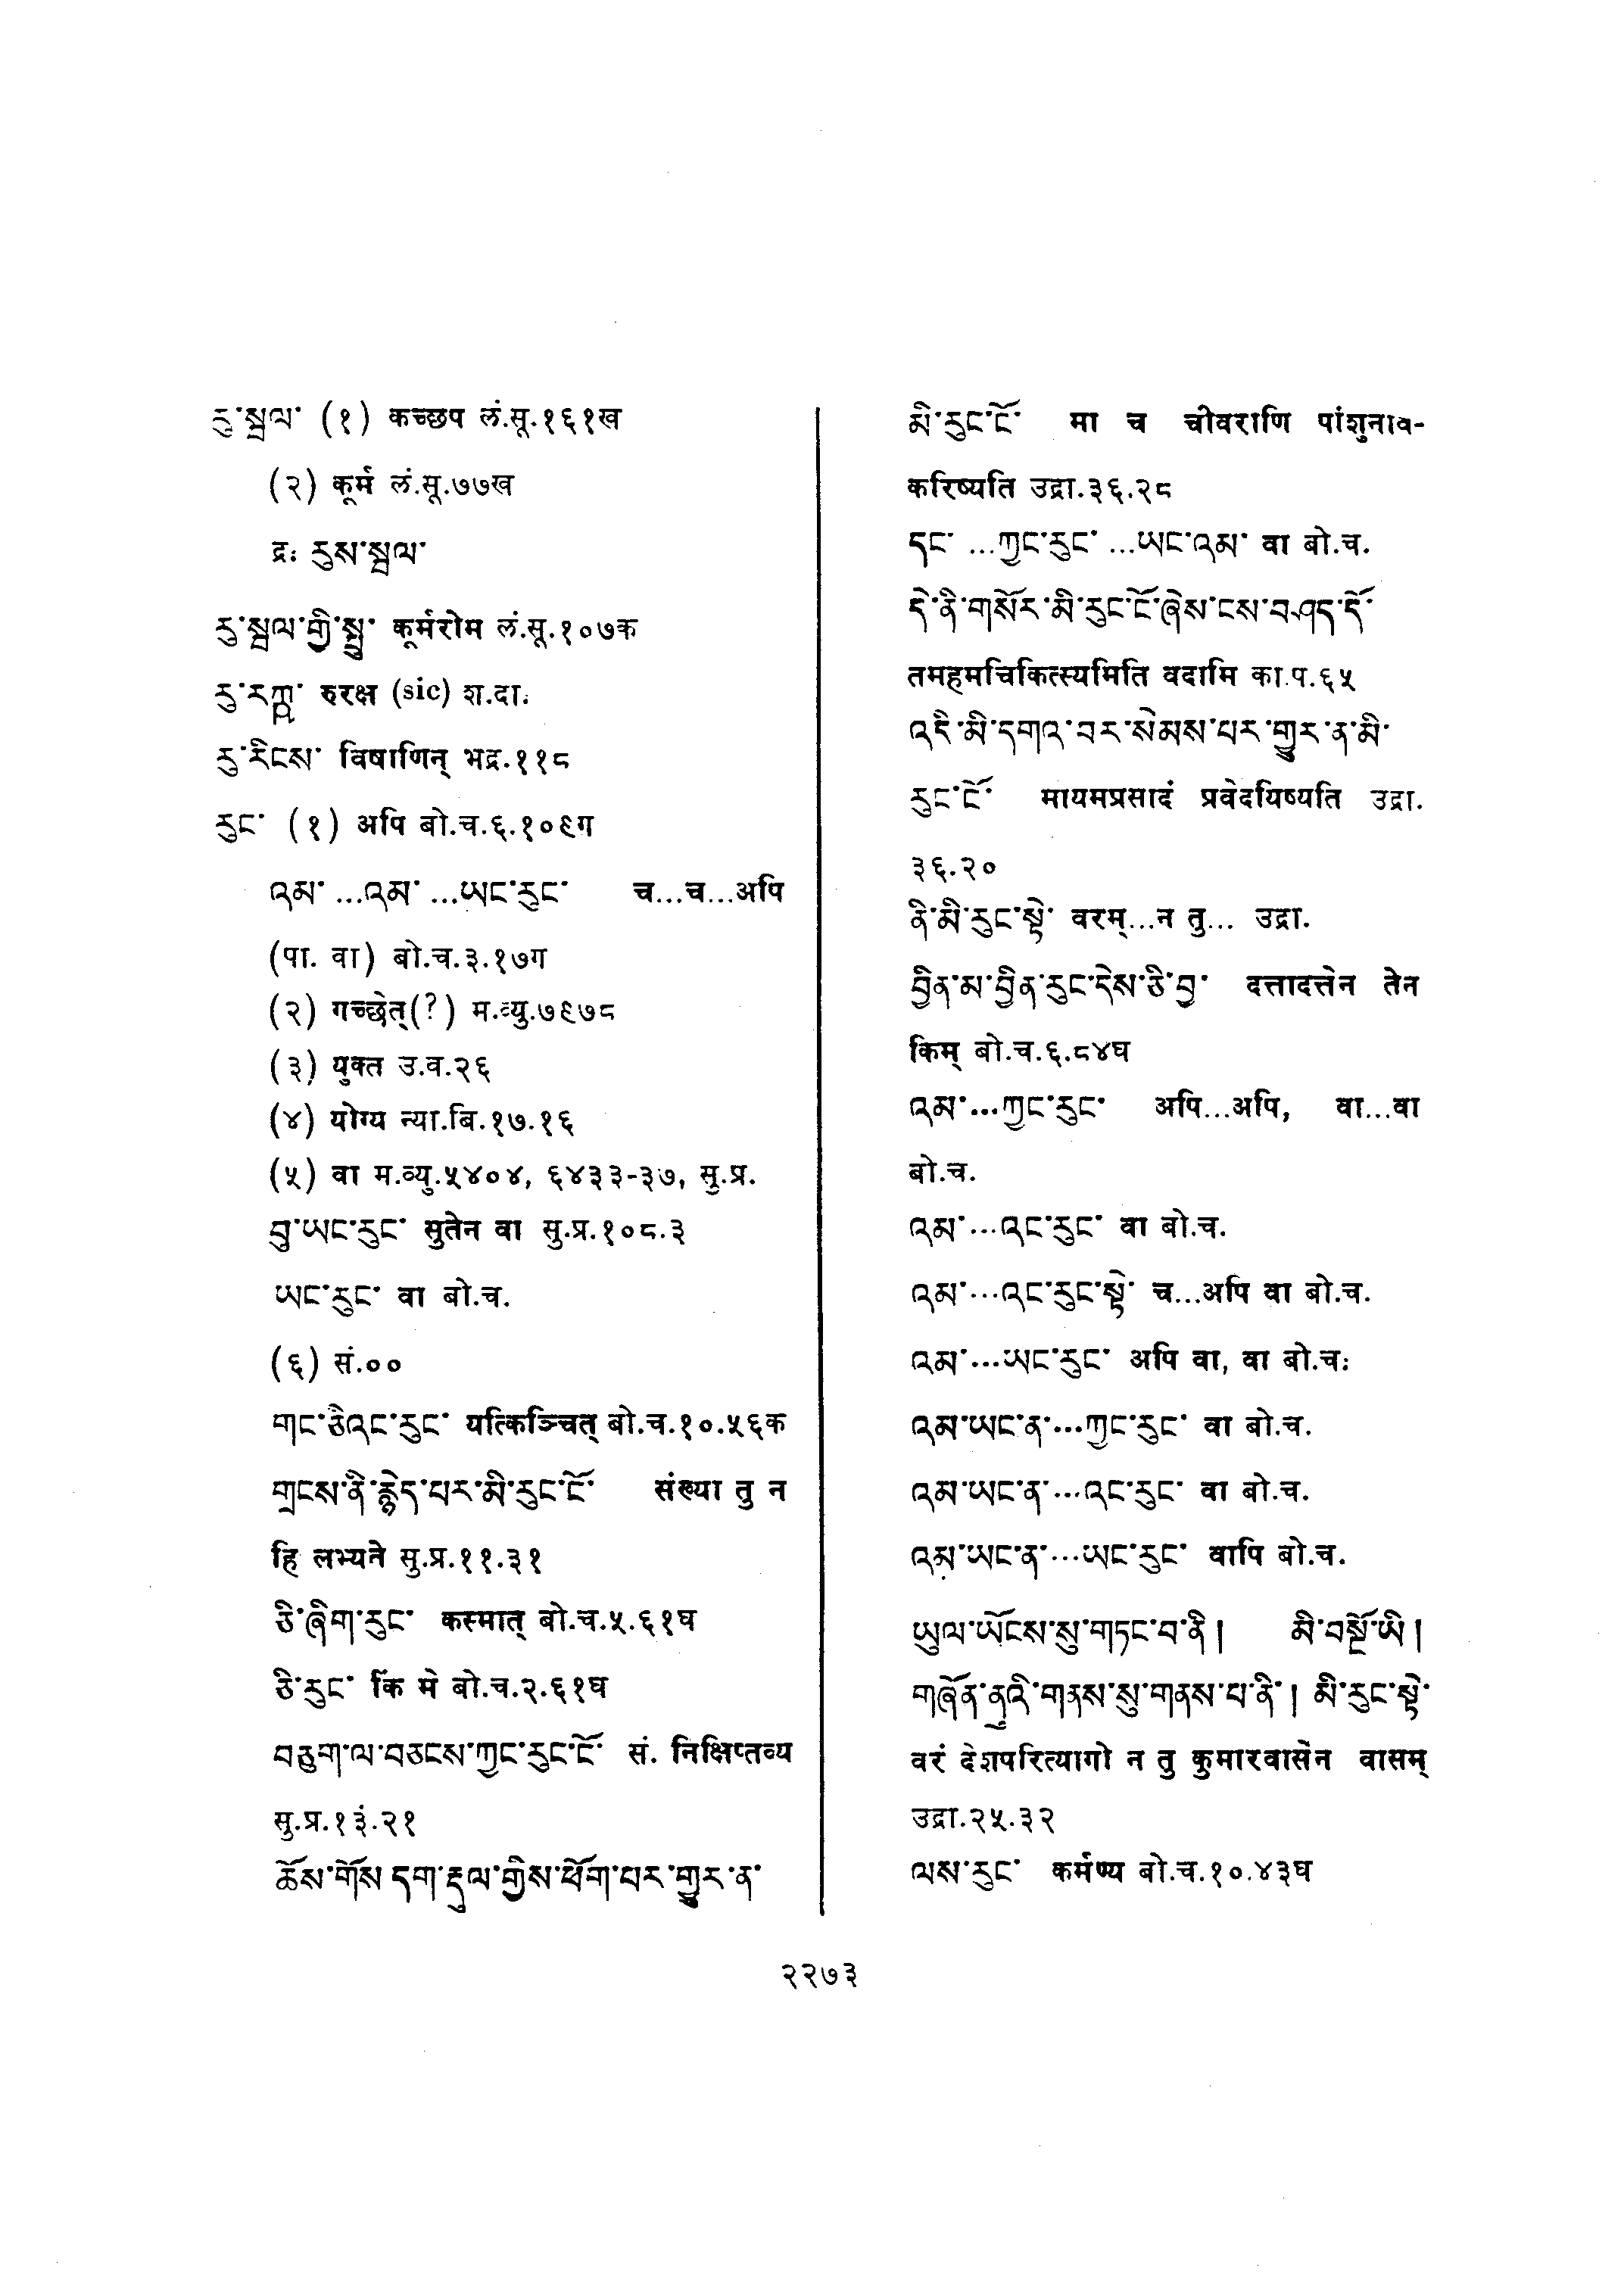 རུ་སྦལ་ (१) कच्छप लं.सू.१६१ख
(२) कूर्म लं.सू.७७ख
द्र. རུས་སྦལ་
རུ་སྦལ་གྱི་སྤུ་ कूर्मरोम लं.सू.१०७क
རུ་རཀྵ་ रुरक्ष (sic) श.दा.
རུ་རིངས་ विषाणिन् भद्र.११८
རུང་ (१) अपि बो.च.६.१०९ग
འམ་ ...འམ་ ...ཡང་རུང་ च...च...अपि
(पा. वा) बो.च.३.१७ग
(२) गच्छेत्(?) म.व्यु.७९७८
(३) युक्त उ.व.२६
(४) योग्य न्या.बि.१७.१६
(५) वा म.व्यु.५४०४, ६४३३-३७, सु.प्र.
བུ་ཡང་རུང་ सुतेन वा सु.प्र.१०८.३
ཡང་རུང་ वा बो.च.
(६) सं.००
གང་ཅིའང་རུང་ यत्किञ्चित् बो.च.१०.५६क
གྲངས་ནི་རྙེད་པར་མི་རུང་ངོ་ संख्या तु न
हि लभ्यते सु.प्र.११.३१
ཅི་ཞིག་རུང་ कस्मात् बो.च.५.६१घ
ཅི་རུང་ किं मे बो.च.२.६१घ
བཅུག་ལ་བཅངས་ཀྱང་རུང་ངོ་ सं. निक्षिप्तव्य
सु.प्र.१३.२१
ཆོས་གོས་དག་རྡུལ་གྱིས་ཕོག་པར་གྱུར་ན་
མི་རུང་ངོ་ मा च चीवराणि पांशुनाव-
करिष्यति उद्रा.३६.२८
དང་ ...ཀྱང་རུང་ ...ཡང་འམ་ वा बो.च.
དེ་ནི་གསོར་མི་རུང་ངོ་ཞེས་ངས་བཤད་དོ་
तमहमचिकित्स्यमिति वदामि का.प.६५
འདི་མི་དགའ་བར་སེམས་པར་གྱུར་ན་མི་
རུང་ངོ་ मायमप्रसादं प्रवेदयिष्यति उद्रा.
३६.२०
ནི་མི་རུང་སྟེ་ वरम्...न तु... उद्रा.
བྱིན་མ་བྱིན་རུང་དེས་ཅི་བྱ་ दत्तादत्तेन तेन
किम् बो.च.६.८४घ
འམ་...ཀྱང་རུང་ अपि...अपि, वा...वा
बो.च.
འམ་...འང་རུང་ वा बो.च.
འམ་...འང་རུང་སྟེ་ च...अपि वा बो.च.
འམ་...ཡང་རུང་ अपि वा, वा बो.च.
འམ་ཡང་ན་...ཀྱང་རུང་ वा बो.च.
འམ་ཡང་ན་...འང་རུང་ वा बो.च.
འམ་ཡང་ན་...ཡང་རུང་ वापि बो.च.
ཡུལ་ཡོངས་སུ་གཏང་བ་ནི། མི་བསྔོ་ཡི།
གཞོན་ནུའི་གནས་སུ་གནས་པ་ནི། མི་རུང་སྟེ་
वरं देशपरित्यागो न तु कुमारवासेन वासम्
उद्रा.२५.३२
ལས་རུང་ कर्मण्य बो.च.१०.४३घ
२२७३